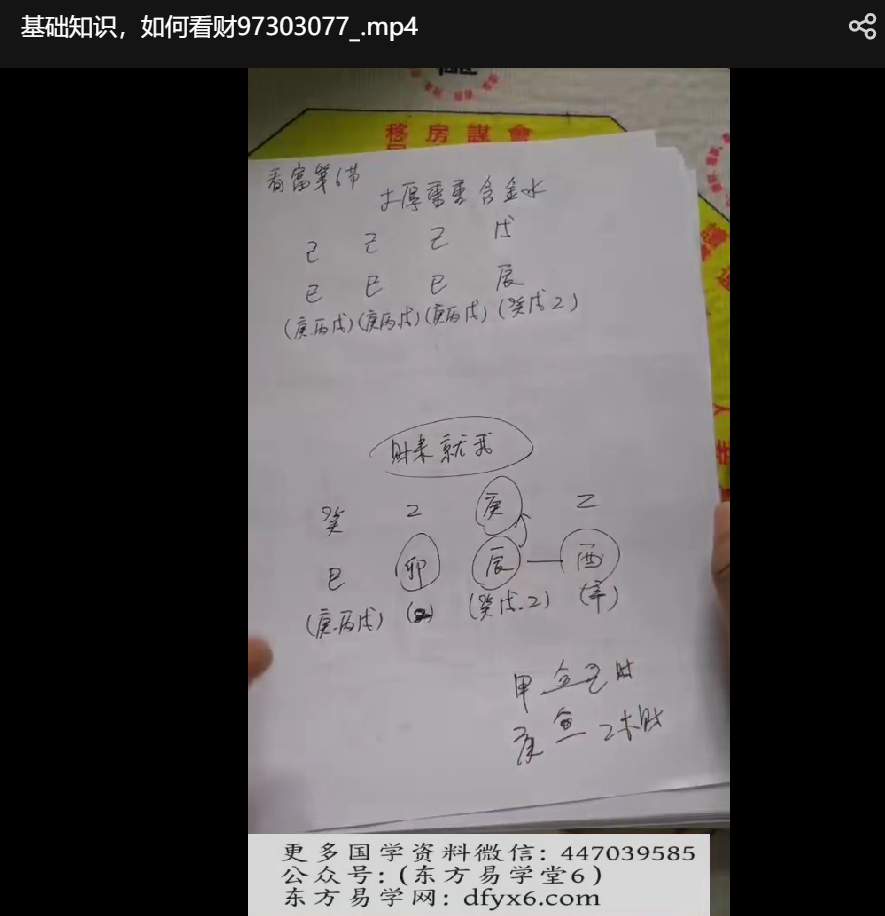 基础知识，如何看财97303077_.mp4
移房謀會
看富第6节
土厚重重含金水
己 己 己 戊
巳 巳 巳 辰
(庚丙戊)(庚丙戊)(庚丙戊)(癸戊乙)
财来就我
癸 乙 庚 乙
巳 卯 辰 酉
(庚丙戊) (乙) (癸戊.乙) (辛)
甲 己财
庚 乙木财
更多国学资料微信：447039585
公众号：(东方易学堂6)
东方易学网：dfyx6.com